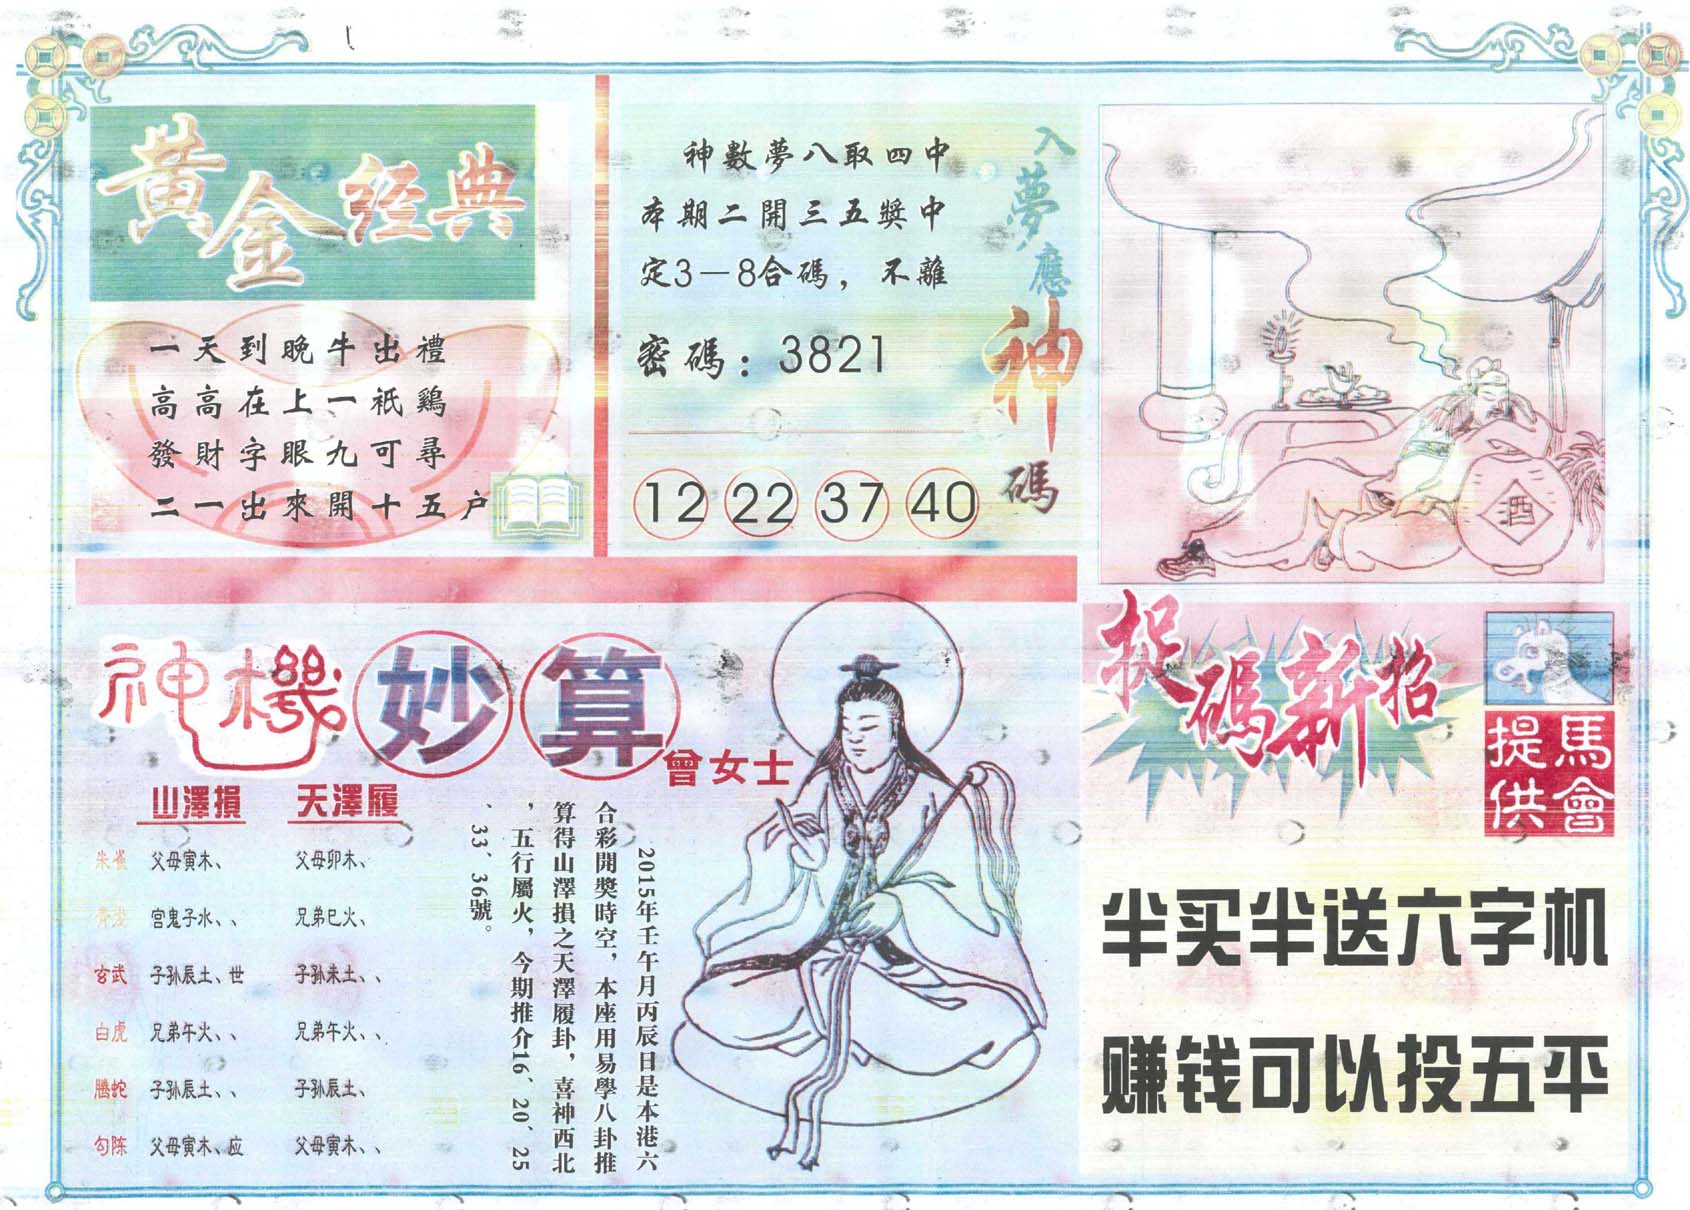 黃金经典
一天到晚牛出禮
高高在上一祇鷄
發財字眼九可尋
二一出來開十五户
入夢應神碼
神數夢八取四中
本期二開三五獎中
定3－8合碼，不離
密碼：3821
12 22 37 40
酒
神機妙算
曾女士
山澤損 天澤履
朱雀 父母寅木、 父母卯木、
宫鬼子水、、 兄弟巳火、
玄武 子孙辰土、世 子孙未土、、
白虎 兄弟午火、、 兄弟午火、、
腾蛇 子孙辰土、、 子孙辰土、
勾陈 父母寅木、应 父母寅木、、
2015年壬午月丙辰日是本港六
合彩開獎時空，本座用易學八卦推
算得山澤損之天澤履卦，喜神西北
，五行屬火，今期推介16、20、25
、33、36號。
捉碼新招
馬會
提供
半买半送六字机
赚钱可以投五平